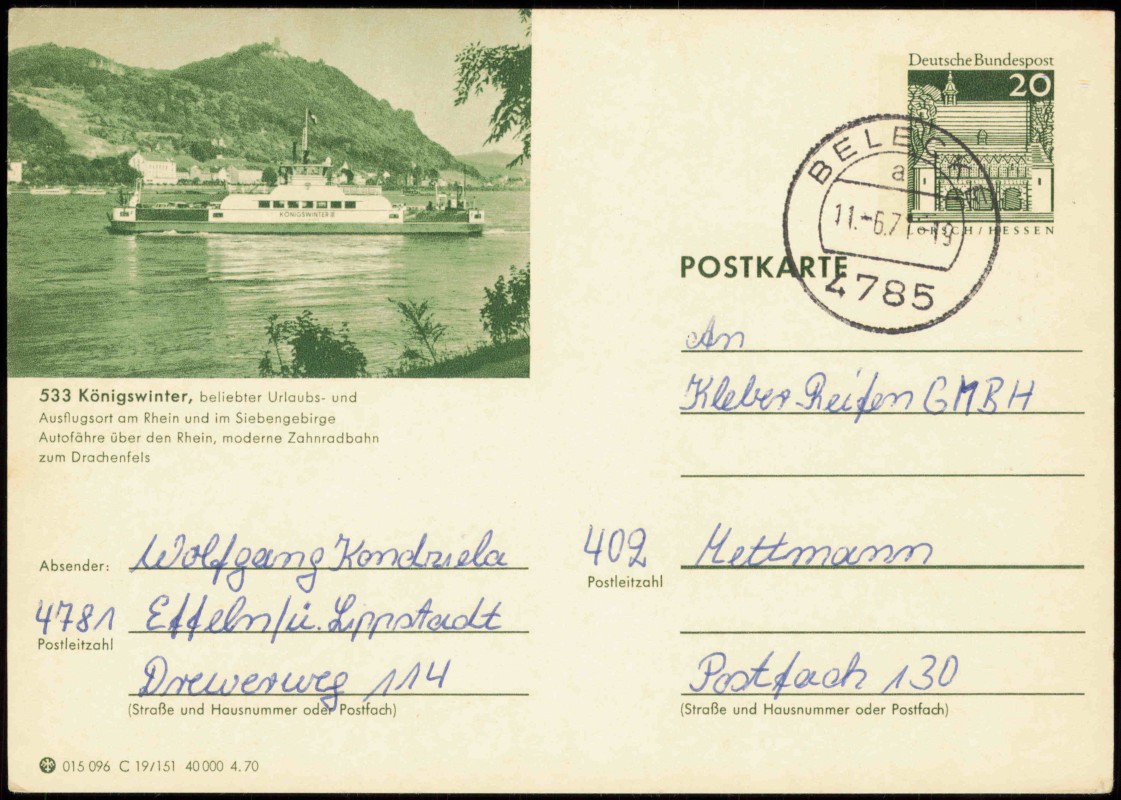 KÖNIGSWINTER III
533 Königswinter, beliebter Urlaubs- und
Ausflugsort am Rhein und im Siebengebirge
Autofähre über den Rhein, moderne Zahnradbahn
zum Drachenfels
Deutsche Bundespost
20
LORSCH/HESSEN
BELECKE
a
11.-6.71-19
4785
POSTKARTE
An
Kleber Reifen GMBH
402 Mettmann
Postleitzahl
Postfach 130
(Straße und Hausnummer oder Postfach)
Absender: Wolfgang Kondziela
4781 Effeln/ü. Lippstadt
Postleitzahl
Drewerweg 114
(Straße und Hausnummer oder Postfach)
015 096 C 19/151 40 000 4.70